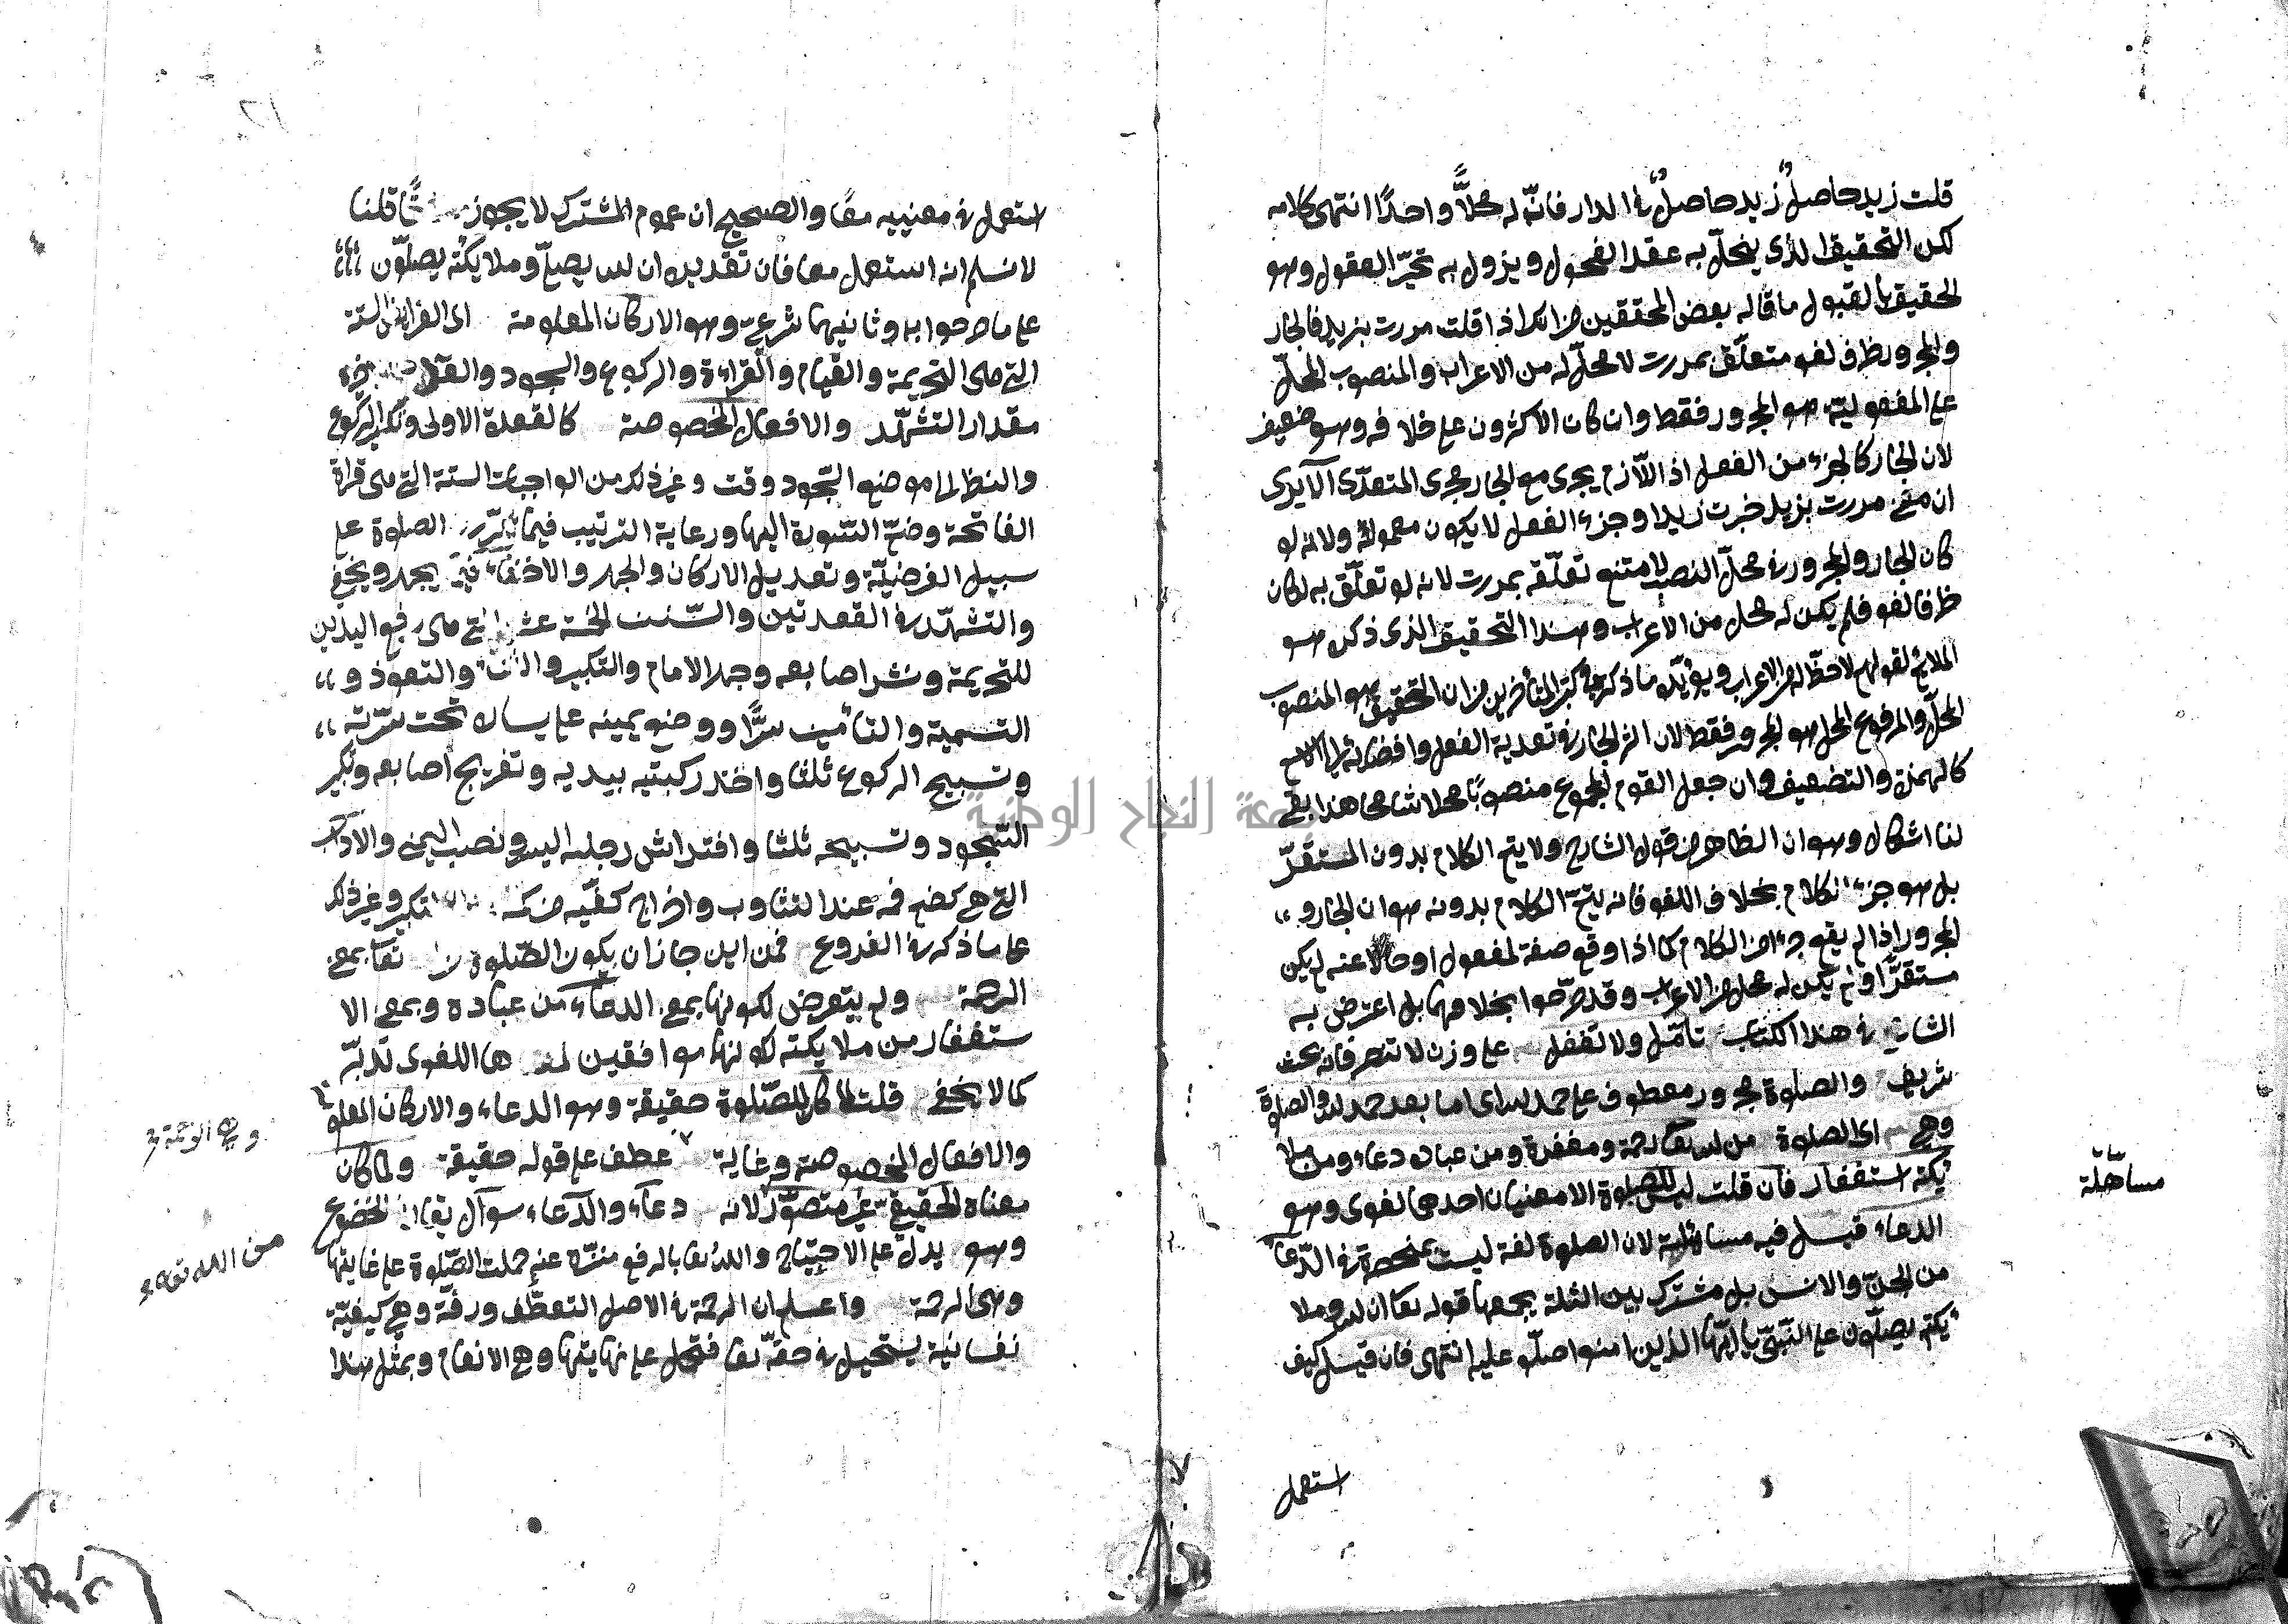 قلت زيد حاصل زيد حاصل في الدار فانّه له محلاًّ واحدًا انتهى كلامه
لكن التحقيق الذي ينحلّ به عقد الفحول ويزول به تحيّر العقول وهو
الحقيق بالقبول ما قاله بعض المحققين من انك اذا قلت مررت بزيد فالجار
والمجرور ظرف لغو متعلّق بمررت لا محلّ له من الاعراب والمنصوب المحلّ
على المفعولية هو المجرور فقط وان كان الاكثرون على خلافه وهو ضعيف
لان الجار كالجزء من الفعل اذ اللازم يجرى مع الجار مجرى المتعدّى الا يرى
ان معنى مررت بزيد جزت زيدا وجزء الفعل لا يكون معموله ولانه لو
كان الجار والمجرور في محلّ النصب لامتنع تعلّقه بمررت لانه لو تعلّق به لكان
ظرفا لغو فلم يكن له محل من الاعراب وهذا التحقيق الذى ذكر هو
الملايم لقولهم لا حظّ له من الاعراب ويؤيّده ما ذكره اكثر المتأخرين من ان التحقيق هو المنصوب
المحلّ والمرفوع المحل هو المجرور فقط لان اثر الجار في تعدية الفعل وافضائه الى الاسم
كالهمزة والتضعيف وان جعل القوم المجموع منصوبًا محلا تسامحا هذا بقى
لنا اشكال وهو ان الظاهر من قول الشارح ولا يتم الكلام بدون المستقرّ
بل هو جزء الكلام بخلاف اللغو فانه يتمّ الكلام بدونه هو ان الجار و
المجرور اذا لم يقع جزءا من الكلام كما اذا وقع صفة لمفعول او حالا عنه لم يكن
مستقرًّا ولم يكن له محل من الاعراب وقد صرّحوا بخلافهما بل اعترض به
الشارح في هذا الكتاب تأمّل ولا تغفل على وزن لا تنصر فانه بحث
شريف والصلوة مجرور معطوف على حمد لله اى اما بعد حمد لله والصلوة
وهي اى الصلوة من الله تعالى رحمة ومغفرة ومن عباده دعاء ومن ملا
ئكته استغفار فان قلت ليس للصلوة الا معنيان احدهما لغوى وهو
الدعاء قيل فيه مساهلة لان الصلوة لغة ليست بمنحصرة في الدّعاء
من الجنّ والانس بل مشترك بين الثلثة يجمعها قوله تعا ان الله وملا
ئكته يصلّون على النّبيّ يا ايّها الذين امنوا صلّوا عليه انتهى فان قيل كيف
استعمل
مساهلة
استعمل في معنييه معًا والصحيح ان عموم المشترك لا يجوز قلنا
لا نسلم انه استعمل معا فان تقديره ان الله يصلّى وملائكته يصلّون
على ما صرحوا به وثانيهما شرعىّ وهو الاركان المعلومة اى الفرائض الستة
التي هى التحريمة والقيام والقراءة والركوع والسجود والقعدة
مقدار التشهّد والافعال المخصوصة كالقعدة الاولى وتكبير الركوع
والنظر الى موضع السّجود وقت وغير ذلك من الواجبات الستة التي هى قراءة
الفاتحة وضمّ السّورة اليها ورعاية الترتيب فيما تكرّر الصلوة على
سبيل الفرضيّة وتعديل الاركان والجهر والاخفاء فيما يجهر ويخفى
والتشهّد في القعدتين والسّنن الخمسة عشر التي هى رفع اليدين
للتحريمة ونشر اصابعه وجهر الامام والتكبير والثناء والتعوذ و
التسمية والتأمين سرًّا ووضع يمينه على يساره تحت سرّته
وتسبيح الركوع ثلثا واخذ ركبتيه بيديه وتفريج أصابعه وتكبير
السّجود وتسبيحه ثلثا وافتراش رجله اليسرى ونصب اليمنى والاداب
التي هي كضم فمه عند التثاوب واخراج كفّيه من كمه التكبير وغير ذلك
على ما ذكر في الفروع فمن اين جاز ان يكون الصّلوة تعا بمعنى
الرحمة ولم يتعرض لكونها بمعنى الدعاء من عباده وبمعنى الا
ستغفار من ملائكته لكونهما موافقين لمعناها اللغوى تدبّر
كما لا يخفى قلت لما كان للصّلوة حقيقة وهو الدعاء والاركان المعلومة
والافعال المخصوصة وغاية عطف على قوله حقيقة ولما كان
معناه الحقيقيّ غير متصوّر لانه دعاء والدّعاء سوآل بقا الخضوع
وهو يدلّ على الاحتياج والله تعا بالرفع منزّه عنه حملت الصّلوة على غايتها
وهى الرحمة واعلم ان الرحمة في الاصل التعطّف ورقّة وهي كيفيّة
نفسانية يستحيل في حقّه تعا فتحمل على نهايتها وهي الانعام وبمثل هذا
من الله تعالى
جامعة النجاح الوطنية